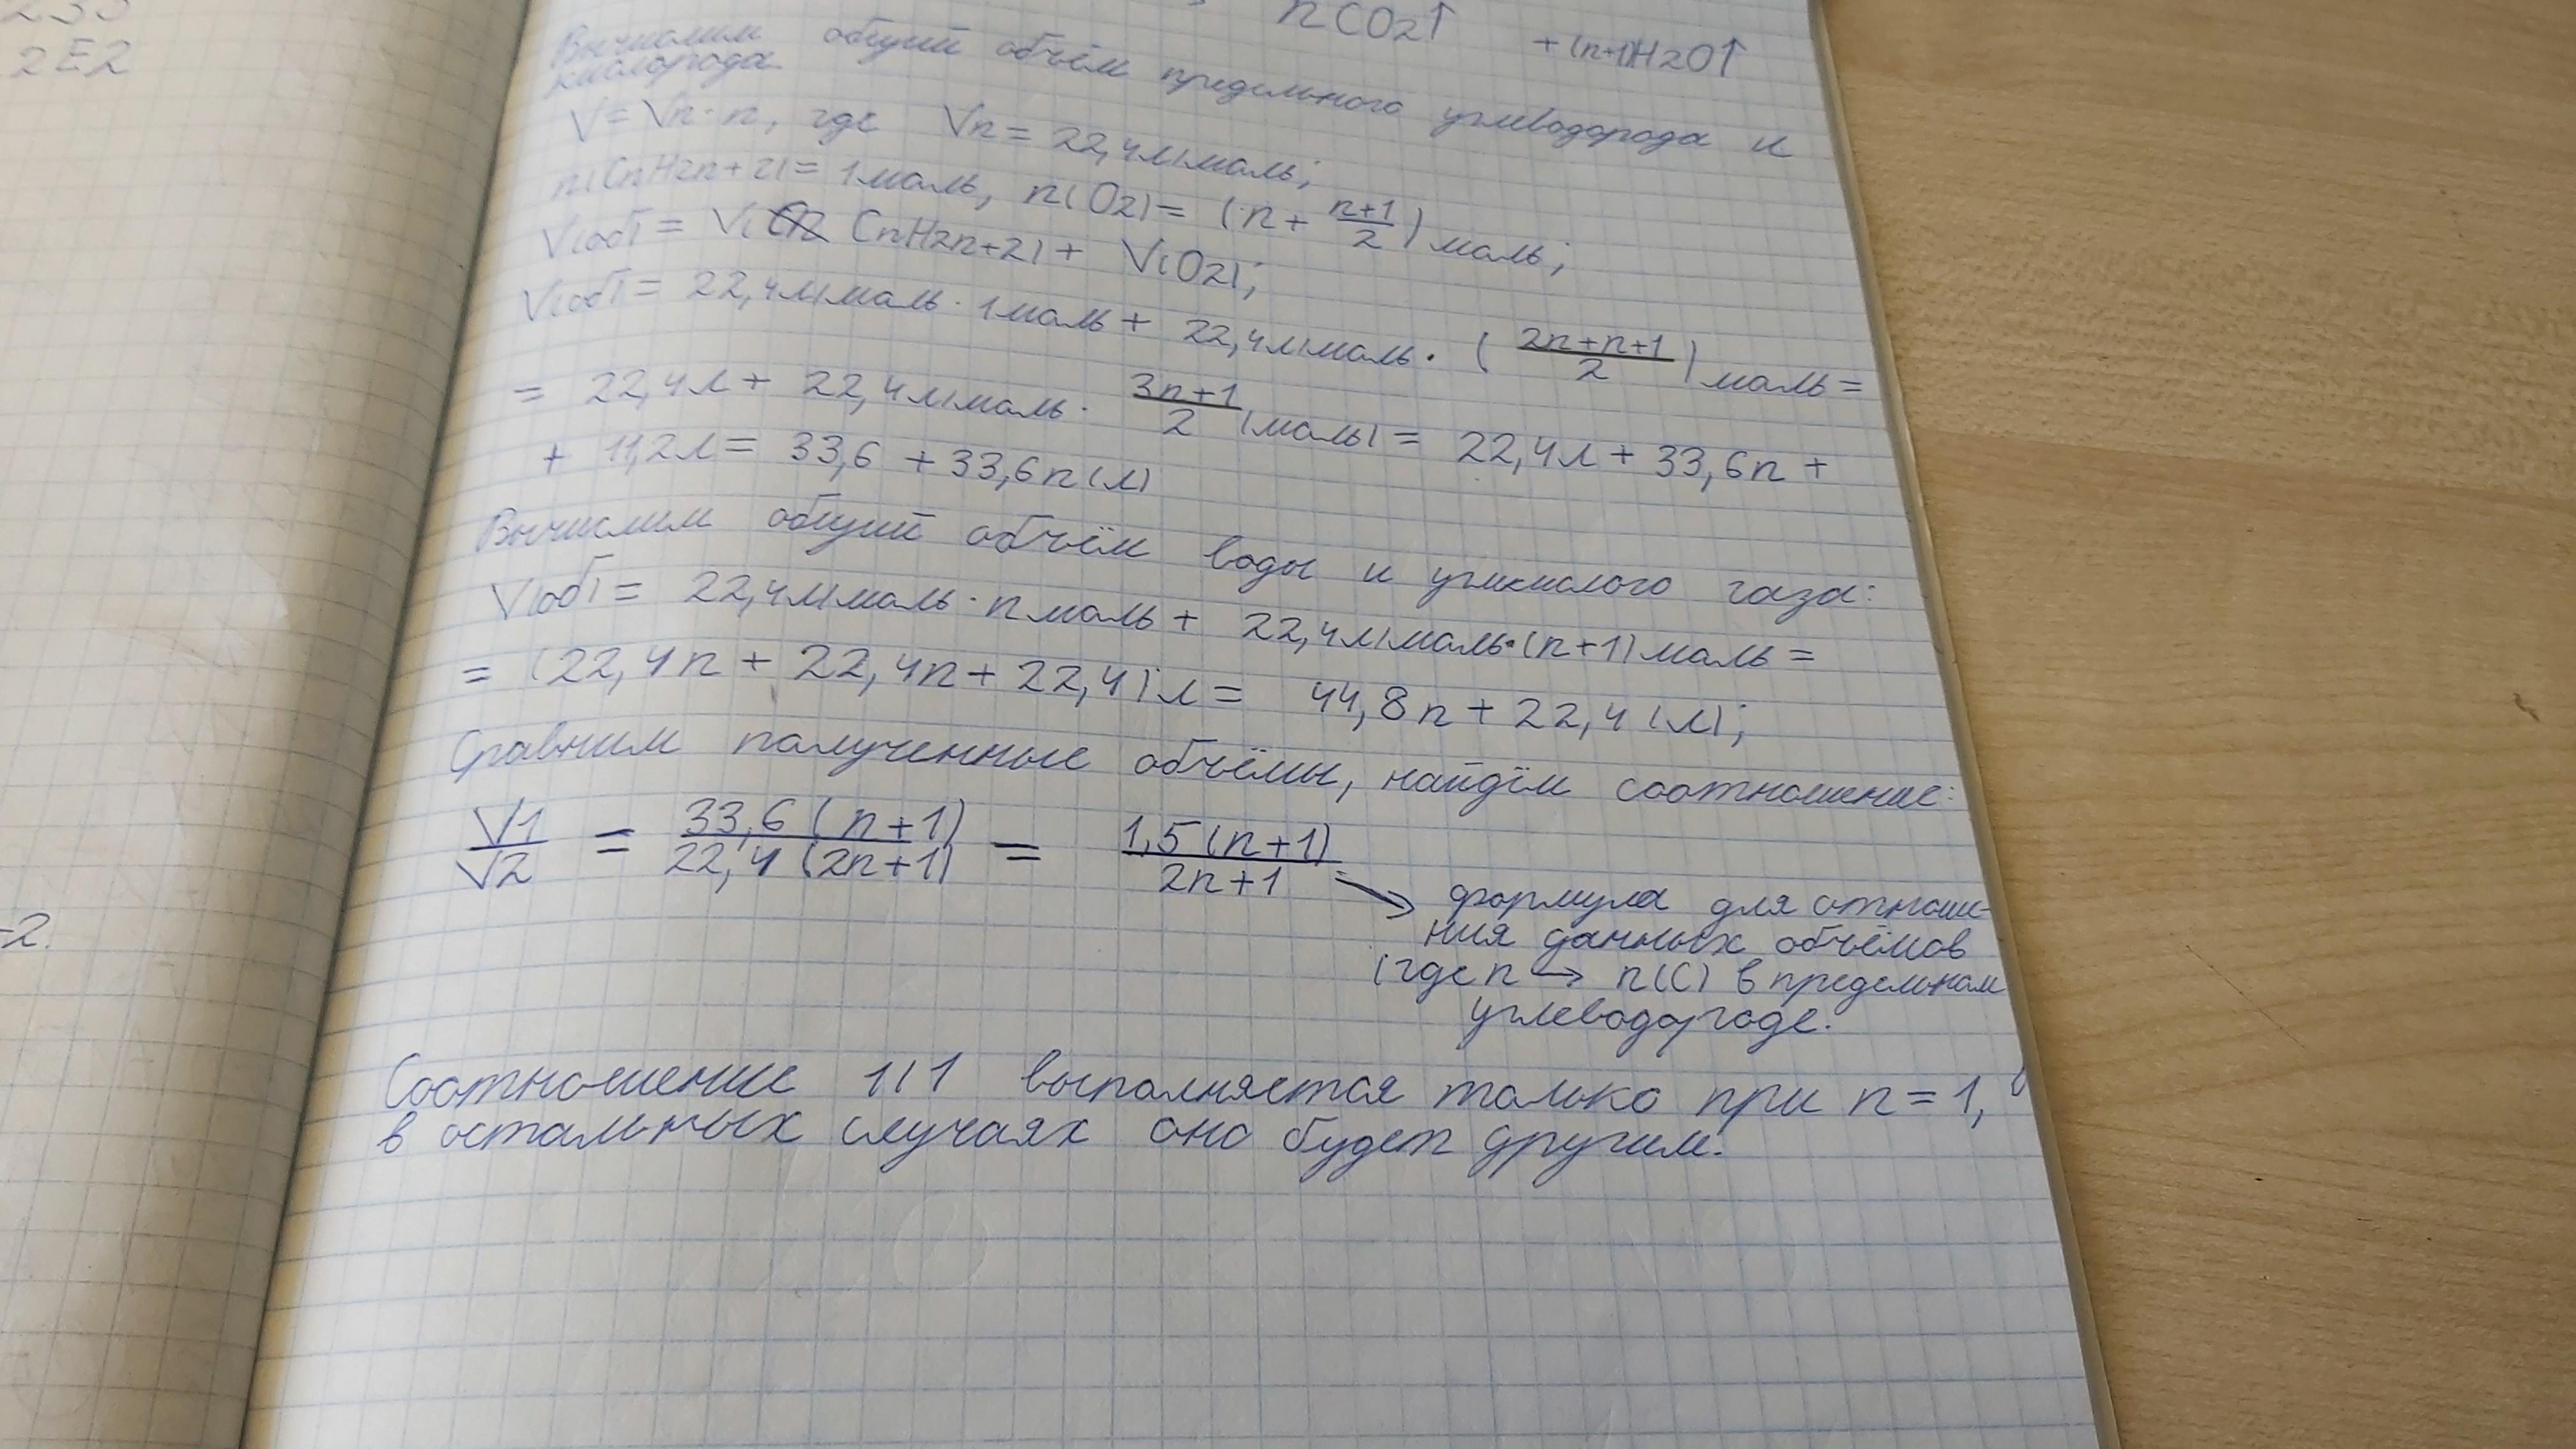 2E2
-2.
nCO2↑ +(n+1)H2O↑
Вычислим общий объём предельного углеводорода и
кислорода.
V=Vn·n, где Vn = 22,4л/моль;
n(CnH2n+2)= 1моль, n(O2)= (n+ n+1/2) моль;
V(об)= V( CnH2n+2)+ V(O2);
V(об)= 22,4л/моль·1моль+ 22,4л/моль·(2n+n+1/2)моль=
= 22,4л+ 22,4л/моль· 3n+1/2 (моль)= 22,4л+33,6n+
+ 11,2л= 33,6 +33,6n(л)
Вычислим общий объём воды и углкислого газа:
V(об)= 22,4л/моль·nмоль+ 22,4л/моль·(n+1)моль=
= (22,4n+22,4n+22,4)л= 44,8n+22,4(л);
Сравним полученные объёмы, найдём соотношение:
V1/V2 = 33,6(n+1)/22,4(2n+1) = 1,5(n+1)/2n+1
→ формула для отноше-
ния данных объёмов
(где n → n(C) в предельном
углеводороде.
Соотношение 1/1 выполняется только при n=1,
в остальных случаях оно будет другим.